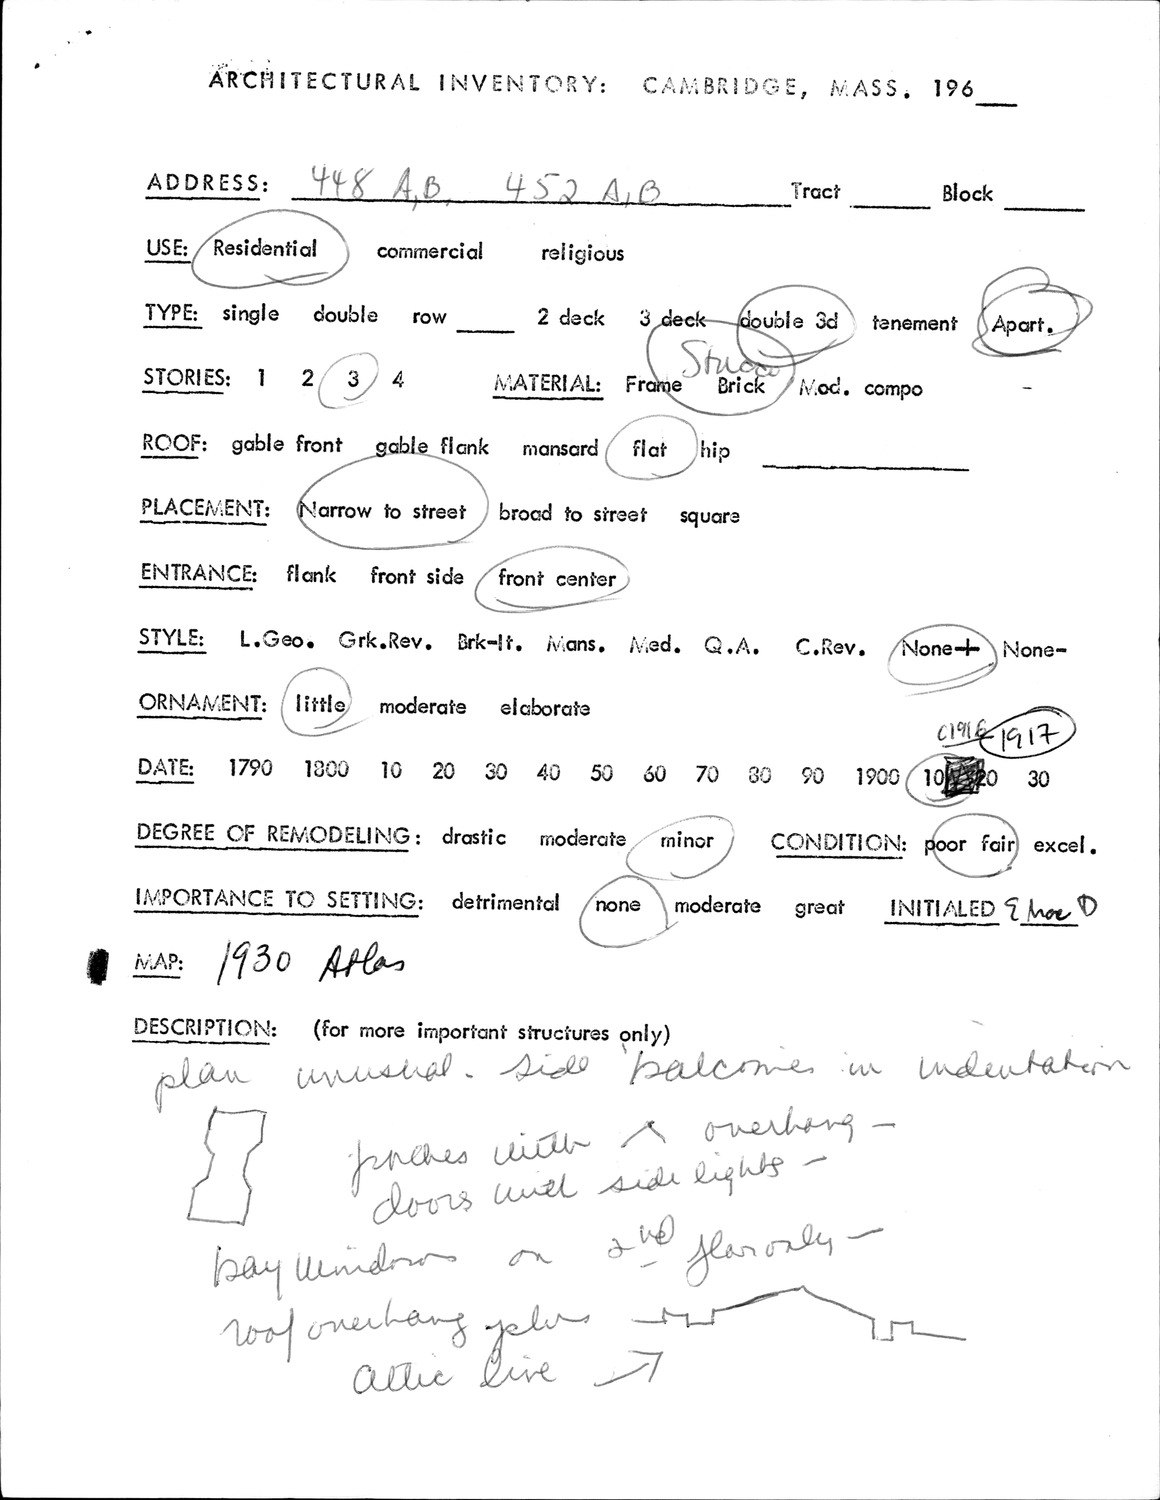 ARCHITECTURAL INVENTORY: CAMBRIDGE, MASS. 196___
ADDRESS: 448 A,B, 452 A,B Tract ______ Block ______
USE: Residential commercial religious
TYPE: single double row ____ 2 deck 3 deck double 3d tenement Apart.
Stucco
STORIES: 1 2 3 4 MATERIAL: Frame Brick Mod. compo -
ROOF: gable front gable flank mansard flat hip ______
PLACEMENT: Narrow to street broad to street square
ENTRANCE: flank front side front center
STYLE: L.Geo. Grk.Rev. Brk-It. Mans. Med. Q.A. C.Rev. None+ None-
ORNAMENT: little moderate elaborate
c1916 1917
DATE: 1790 1800 10 20 30 40 50 60 70 80 90 1900 10 20 30
DEGREE OF REMODELING: drastic moderate minor CONDITION: poor fair excel.
IMPORTANCE TO SETTING: detrimental none moderate great INITIALED
MAP: 1930 Atlas
DESCRIPTION: (for more important structures only)
plan unusual. side balconies in indentation
porches with ^ overhang -
doors with side lights -
bay windows on 2nd floor only -
roof overhang plus
attic line →